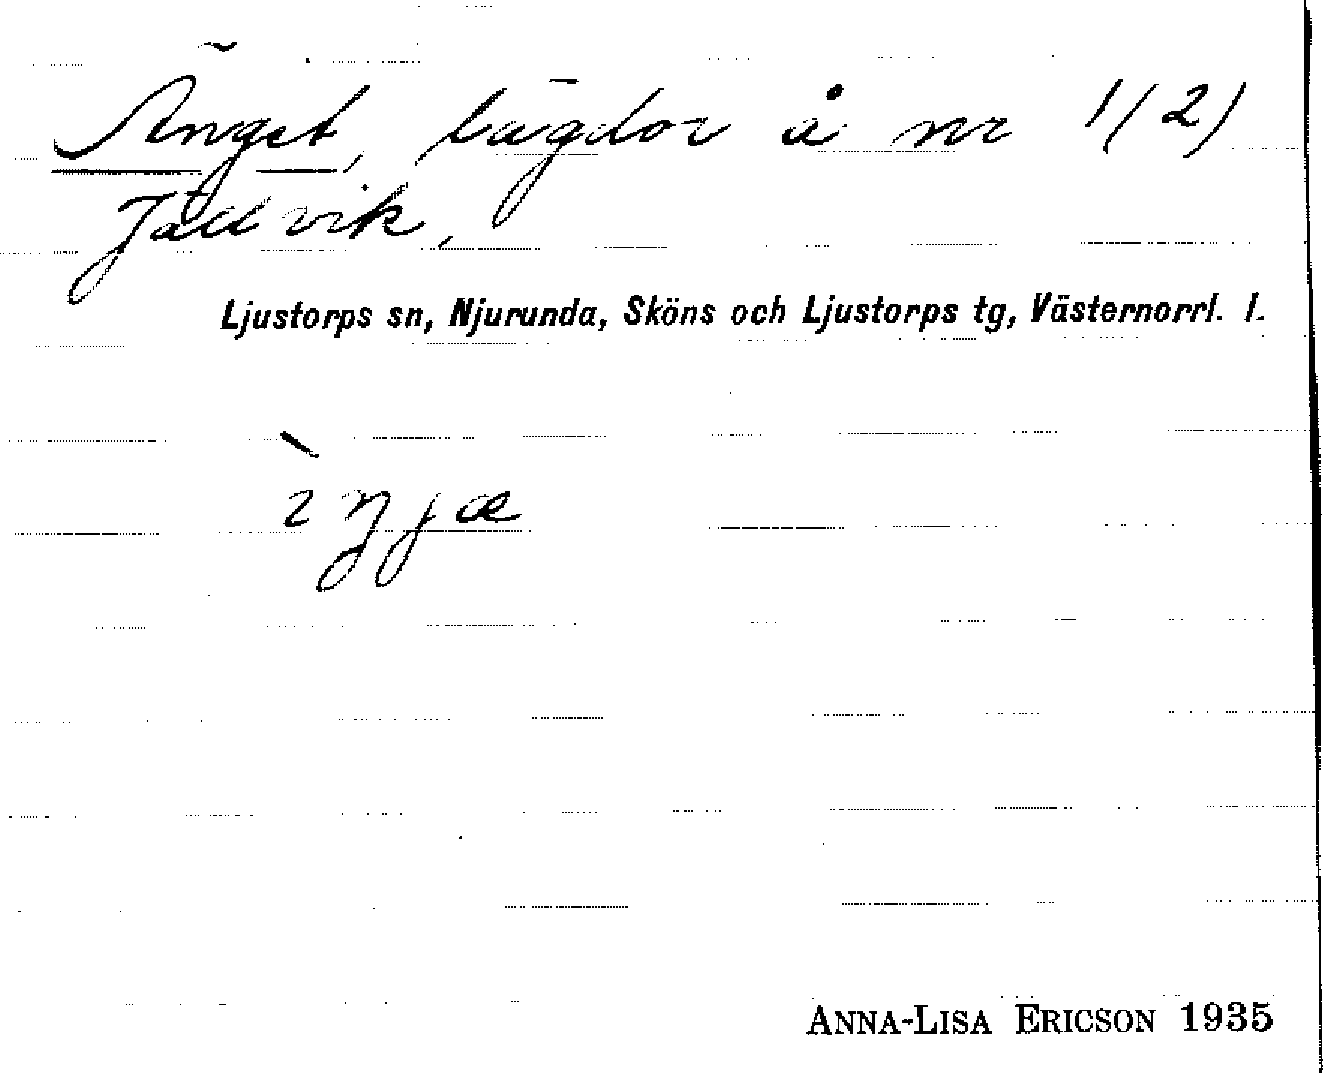 Änget, lägdor å nr 1(2)
Jällvik,
Ljustorps sn, Njurunda, Sköns och Ljustorps tg, Västernorrl. l.
ANNA-LISA ERICSON 1935